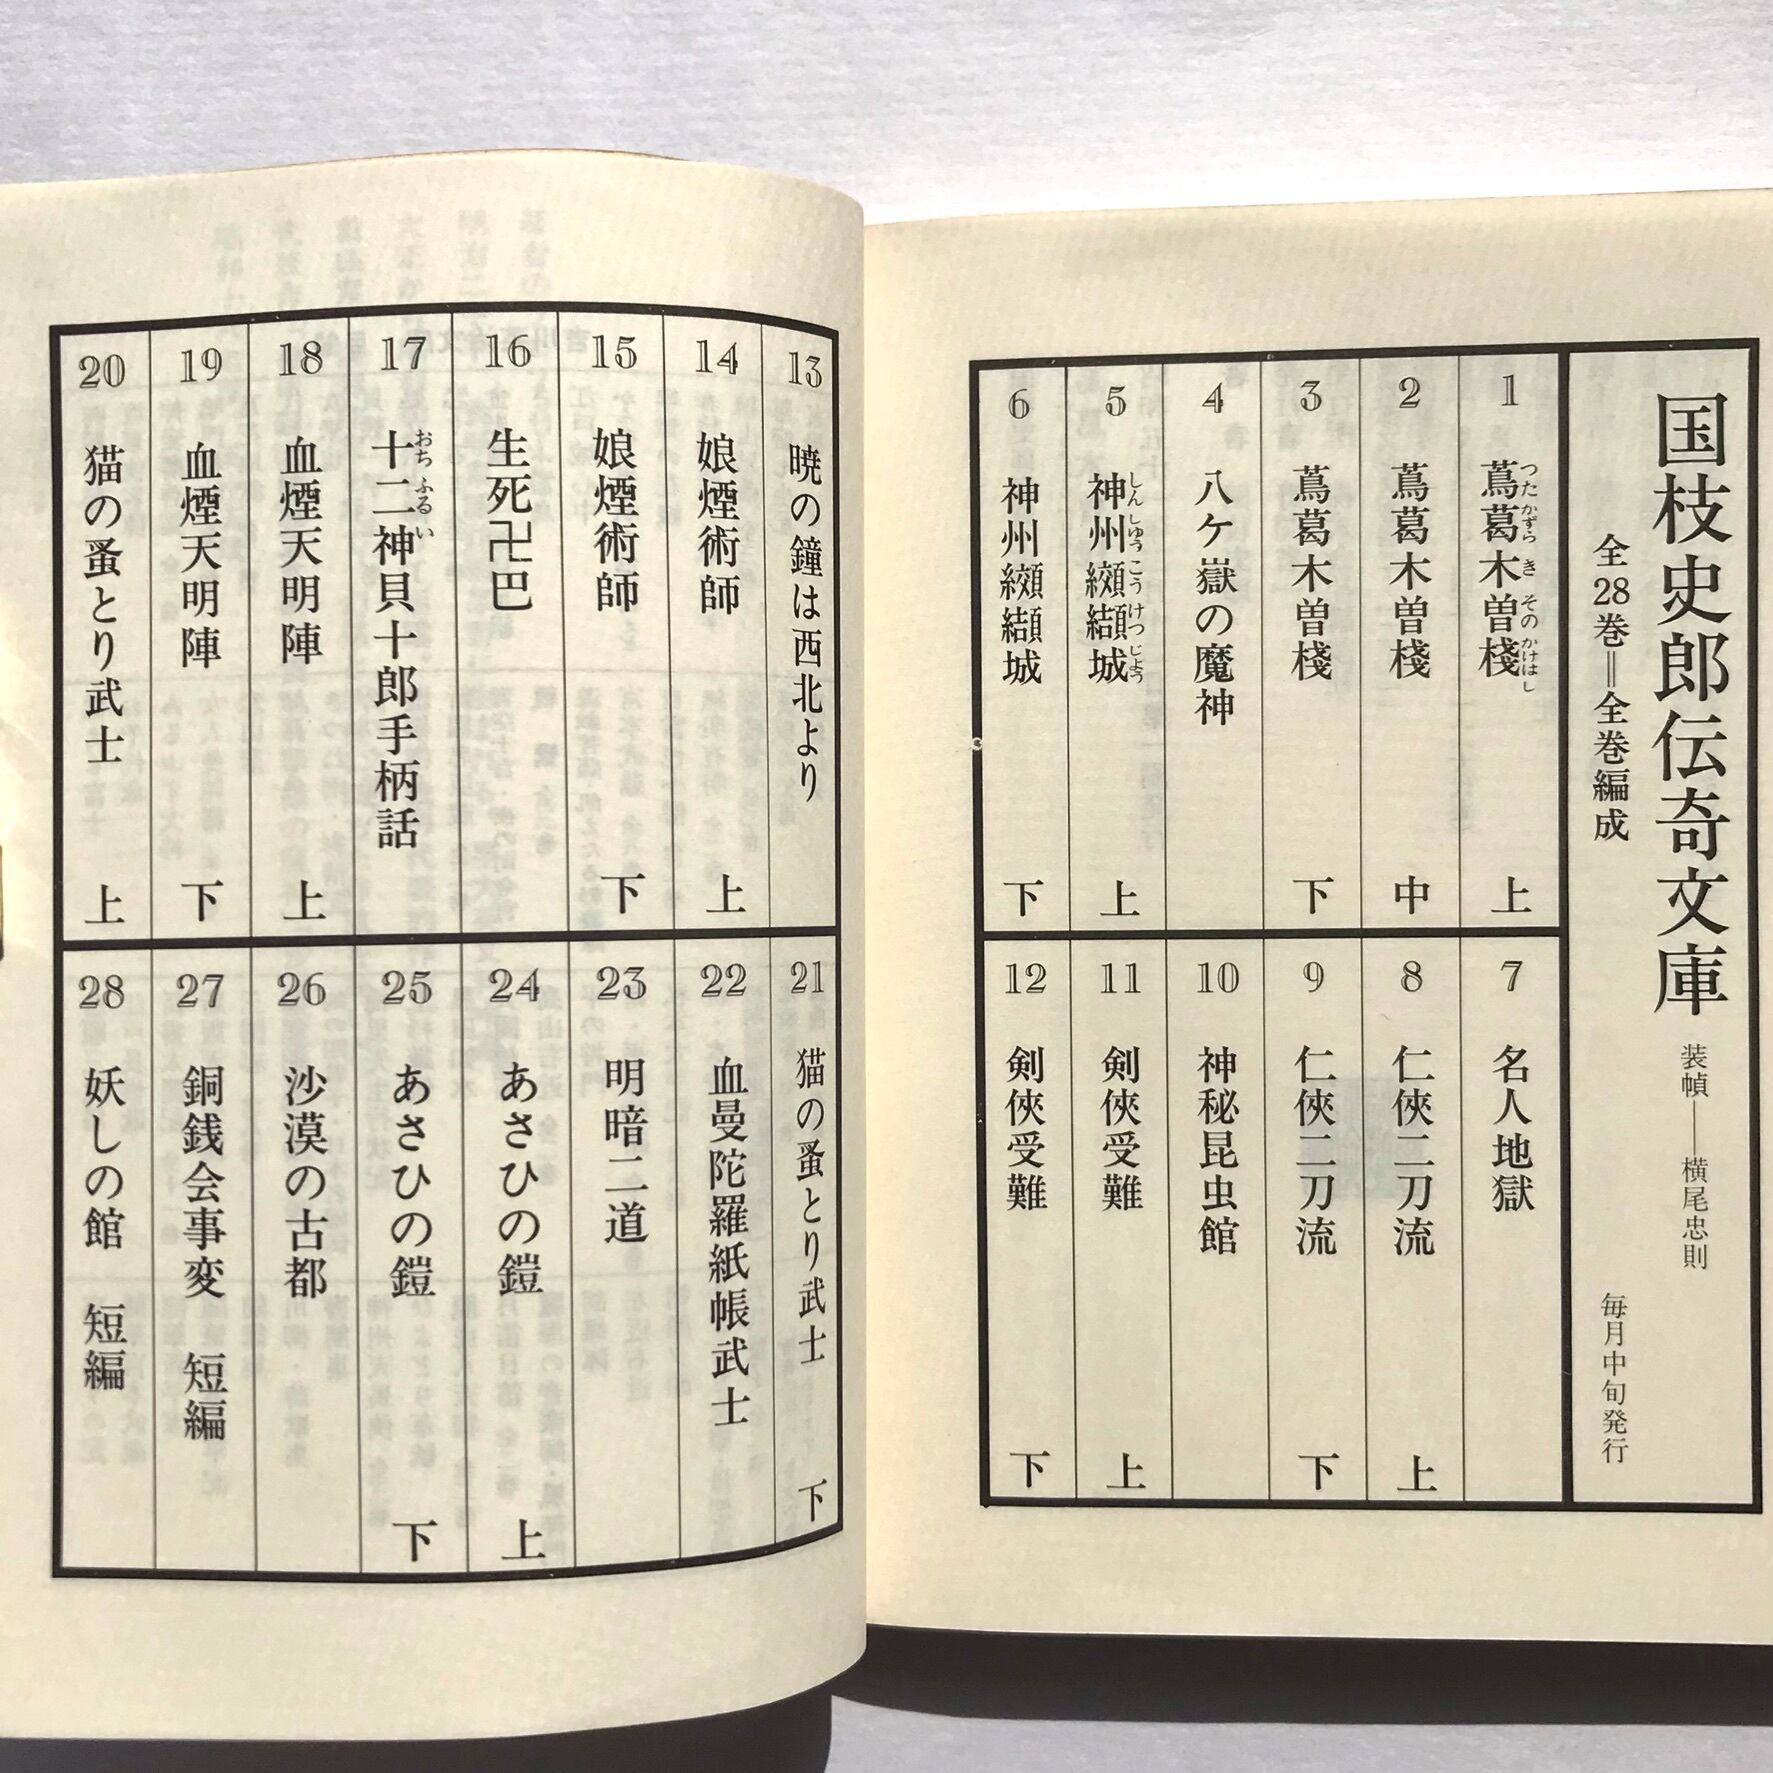 国枝史郎伝奇文庫
装幀――横尾忠則
全28巻＝全巻編成
毎月中旬発行
1 蔦葛木曽棧 上
つたかずらきそのかけはし
2 蔦葛木曽棧 中
3 蔦葛木曽棧 下
4 八ケ嶽の魔神
5 神州纐纈城 上
しんしゅうこうけつじょう
6 神州纐纈城 下
7 名人地獄
8 仁俠二刀流 上
9 仁俠二刀流 下
10 神秘昆虫館
11 剣俠受難 上
12 剣俠受難 下
13 暁の鐘は西北より
14 娘煙術師 上
15 娘煙術師 下
16 生死卍巴
17 十二神貝十郎手柄話
おちふるい
18 血煙天明陣 上
19 血煙天明陣 下
20 猫の蚤とり武士 上
21 猫の蚤とり武士 下
22 血曼陀羅紙帳武士
23 明暗二道
24 あさひの鎧 上
25 あさひの鎧 下
26 沙漠の古都
27 銅銭会事変 短編
28 妖しの館 短編